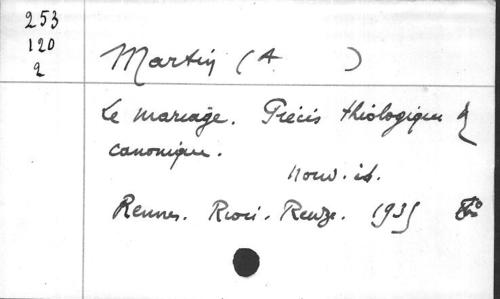 253
120
2
Martin (A )
Le mariage. Précis théologique &
canonique.
nouv. éd.
Rennes. Riou-Reuzé. 1935 8º